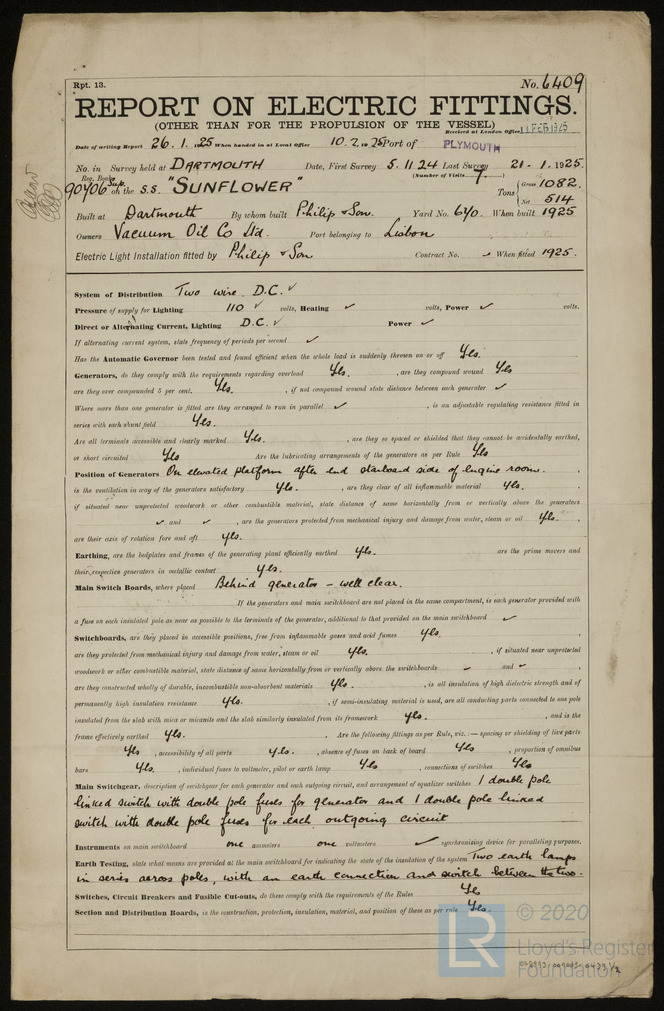 Rpt. 13.
No. 6409
REPORT ON ELECTRIC FITTINGS.
(OTHER THAN FOR THE PROPULSION OF THE VESSEL)
Received at London Office 11 FEB 1925
Date of writing Report 26. 1. 1925 When handed in at Local Office 10. 2. 1925 Port of PLYMOUTH
No. in Survey held at DARTMOUTH Date, First Survey 5. 11 24 Last Survey 21. 1. 1925.
Reg. Book. (Number of Visits 7.)
90406 Sup. on the S.S. "SUNFLOWER" Tons { Gross 1082.
Net 514
Built at Dartmouth By whom built Philip & Son. Yard No. 640. When built 1925
Owners Vacuum Oil Co Ltd. Port belonging to Lisbon
Electric Light Installation fitted by Philip & Son Contract No. When fitted 1925.
System of Distribution Two wire. D.C. ✓
Pressure of supply for Lighting 110 ✓ volts, Heating ✓ volts, Power ✓ volts.
Direct or Alternating Current, Lighting D.C. ✓ Power ✓
If alternating current system, state frequency of periods per second ✓
Has the Automatic Governor been tested and found efficient when the whole load is suddenly thrown on or off Yes.
Generators, do they comply with the requirements regarding overload Yes. , are they compound wound Yes
are they over compounded 5 per cent. Yes. , if not compound wound state distance between each generator ✓
Where more than one generator is fitted are they arranged to run in parallel ✓ , is an adjustable regulating resistance fitted in
series with each shunt field Yes.
Are all terminals accessible and clearly marked Yes. , are they so spaced or shielded that they cannot be accidentally earthed,
or short circuited Yes Are the lubricating arrangements of the generators as per Rule Yes
Position of Generators On elevated platform after end starboard side of Engine room.
is the ventilation in way of the generators satisfactory Yes. , are they clear of all inflammable material Yes. ,
if situated near unprotected woodwork or other combustible material, state distance of same horizontally from or vertically above the generators
✓ and ✓ , are the generators protected from mechanical injury and damage from water, steam or oil Yes. ,
are their axis of rotation fore and aft Yes.
Earthing, are the bedplates and frames of the generating plant efficiently earthed Yes. are the prime movers and
their respective generators in metallic contact Yes.
Main Switch Boards, where placed Behind generator – well clear.
If the generators and main switchboard are not placed in the same compartment, is each generator provided with
a fuse on each insulated pole as near as possible to the terminals of the generator, additional to that provided on the main switchboard ✓
Switchboards, are they placed in accessible positions, free from inflammable gases and acid fumes Yes. ,
are they protected from mechanical injury and damage from water, steam or oil Yes. , if situated near unprotected
woodwork or other combustible material, state distance of same horizontally from or vertically above the switchboards ✓ and ✓ ,
are they constructed wholly of durable, incombustible non-absorbent materials Yes. , is all insulation of high dielectric strength and of
permanently high insulation resistance Yes. , if semi-insulating material is used, are all conducting parts connected to one pole
insulated from the slab with mica or micanite and the slab similarly insulated from its framework Yes. , and is the
frame effectively earthed Yes. . Are the following fittings as per Rule, viz. :— spacing or shielding of live parts
Yes , accessibility of all parts Yes. , absence of fuses on back of board Yes , proportion of omnibus
bars Yes. , individual fuses to voltmeter, pilot or earth lamp Yes , connections of switches Yes
Main Switchgear, description of switchgear for each generator and each outgoing circuit, and arrangement of equalizer switches 1 double pole
linked switch with double pole fuses for generator and 1 double pole linked
switch with double pole fuses for each outgoing circuit
Instruments on main switchboard one ammeters one voltmeters ✓ synchronising device for paralleling purposes.
Earth Testing, state what means are provided at the main switchboard for indicating the state of the insulation of the system Two earth lamps
in series across poles, with an earth connection and switch between the two.
Switches, Circuit Breakers and Fusible Cut-outs, do these comply with the requirements of the Rules Yes
Section and Distribution Boards, is the construction, protection, insulation, material, and position of these as per rule Yes.
© 2020
LR
Lloyd's Register
Foundation